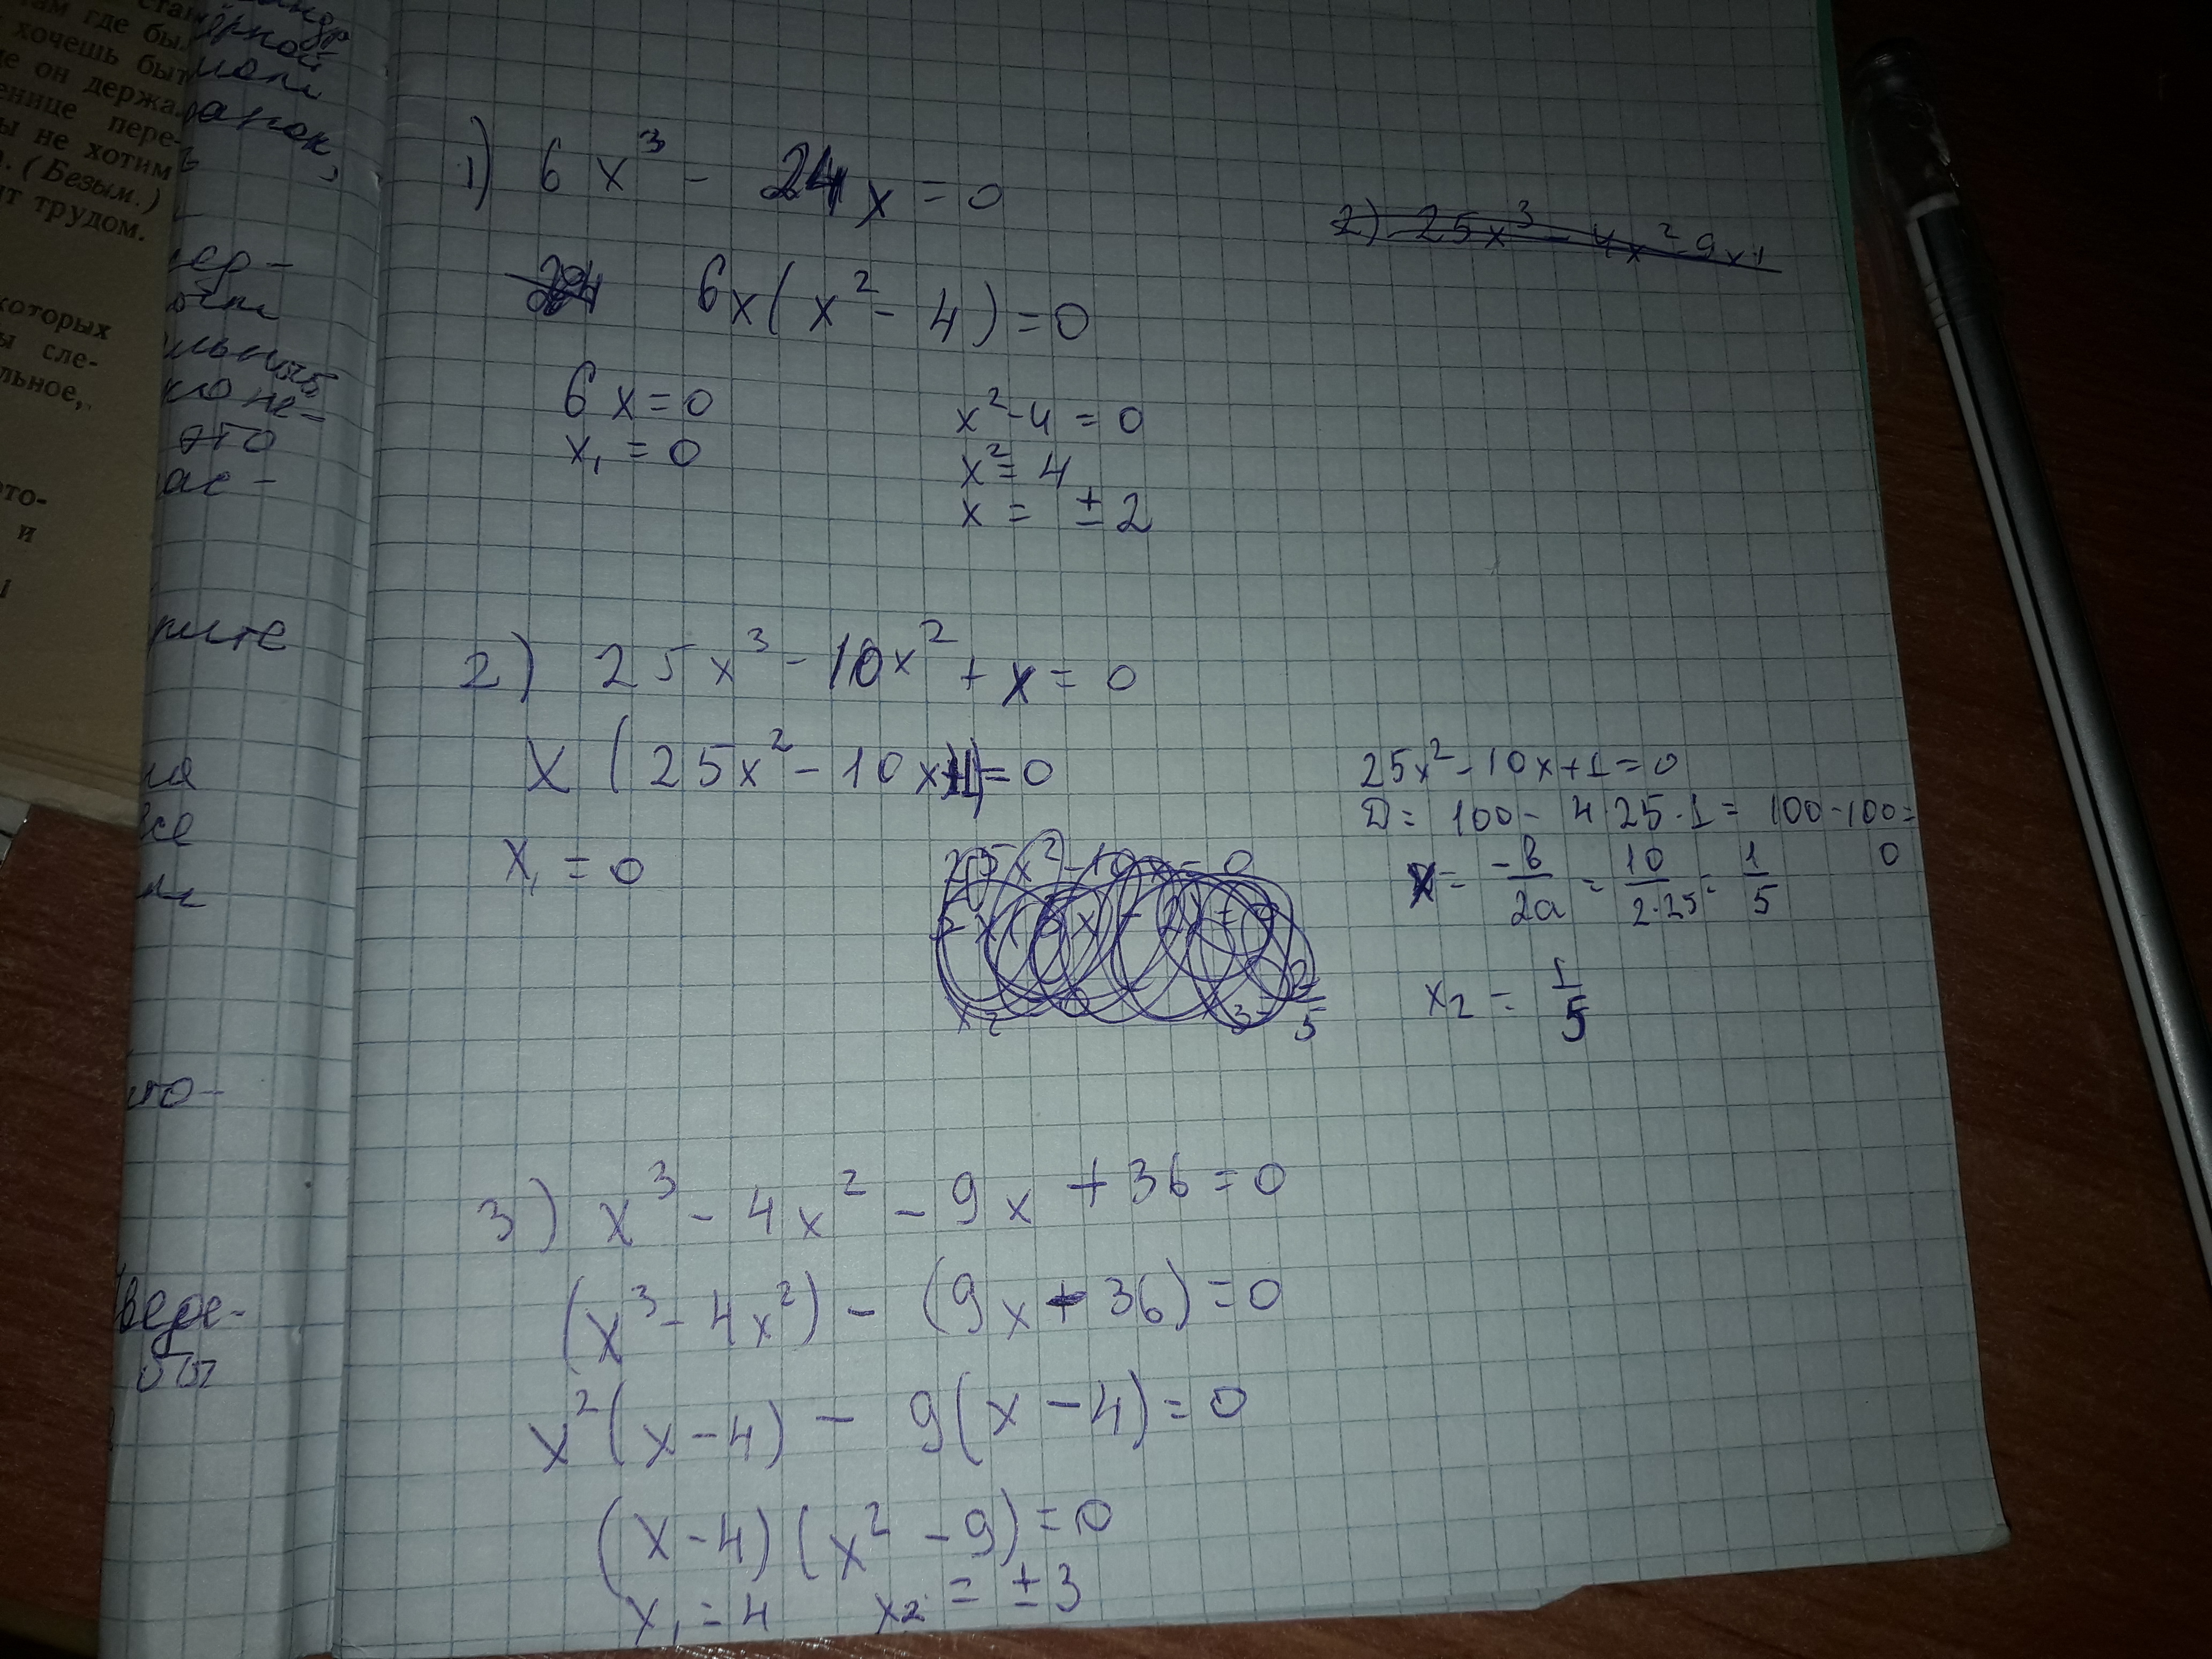 там где бы
хочешь быт
де он держа
енице пере-
ы не хотим
. (Безым.)
ит трудом.
которых
ы сле-
льное,
ото-
и
ёрной
ранок,
чер-
это
ас-
рите
все
что-
веде-
1) 6x³ - 24x = 0
6x(x² - 4) = 0
6x = 0
x₁ = 0
x² - 4 = 0
x² = 4
x = ± 2
2) 25x³ - 4x² - 9x
2) 25x³ - 10x² + x = 0
x (25x² - 10x + 1) = 0
x₁ = 0
25x² - 10x + 1 = 0
D = 100 - 4·25·1 = 100 - 100 =
0
x = -b/2a = 10/2·25 = 1/5
x₂ = 1/5
3) x³ - 4x² - 9x + 36 = 0
(x³ - 4x²) - (9x - 36) = 0
x²(x - 4) - 9(x - 4) = 0
(x - 4)(x² - 9) = 0
x₁ = 4 x₂ = ± 3